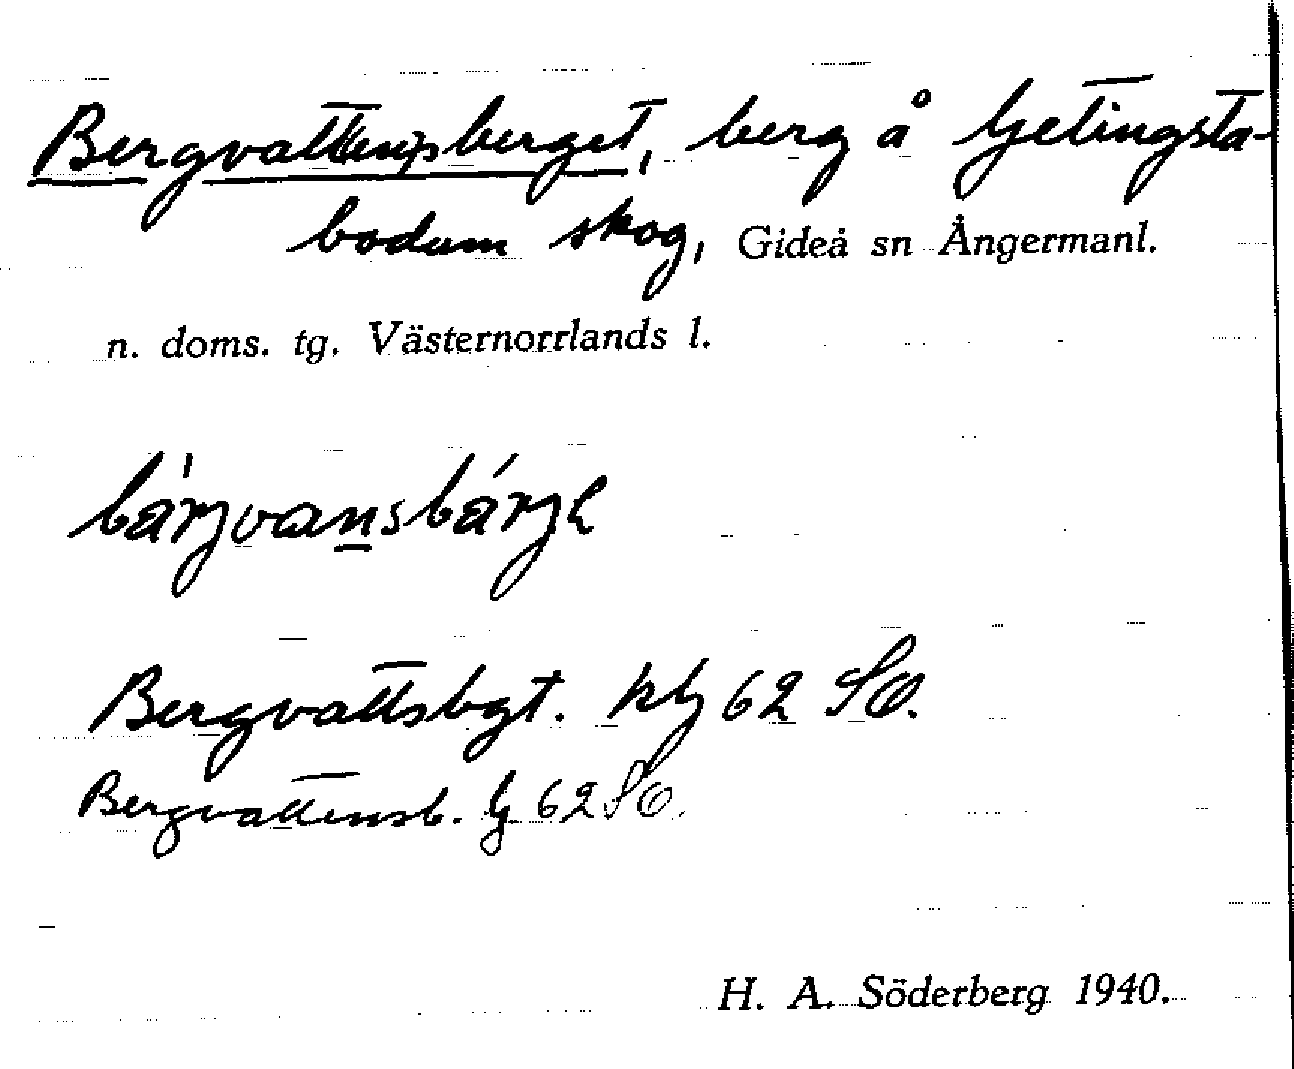 Bergvatt(en)sberget, berg å Getingsta-
bodum skog, Gideå sn Ångermanl.
n. doms. tg. Västernorrlands l.
bárjvansbárje
Bergvattsbgt. kbg 62 SO.
Bergvattensb. G 62 SO.
H. A. Söderberg 1940.